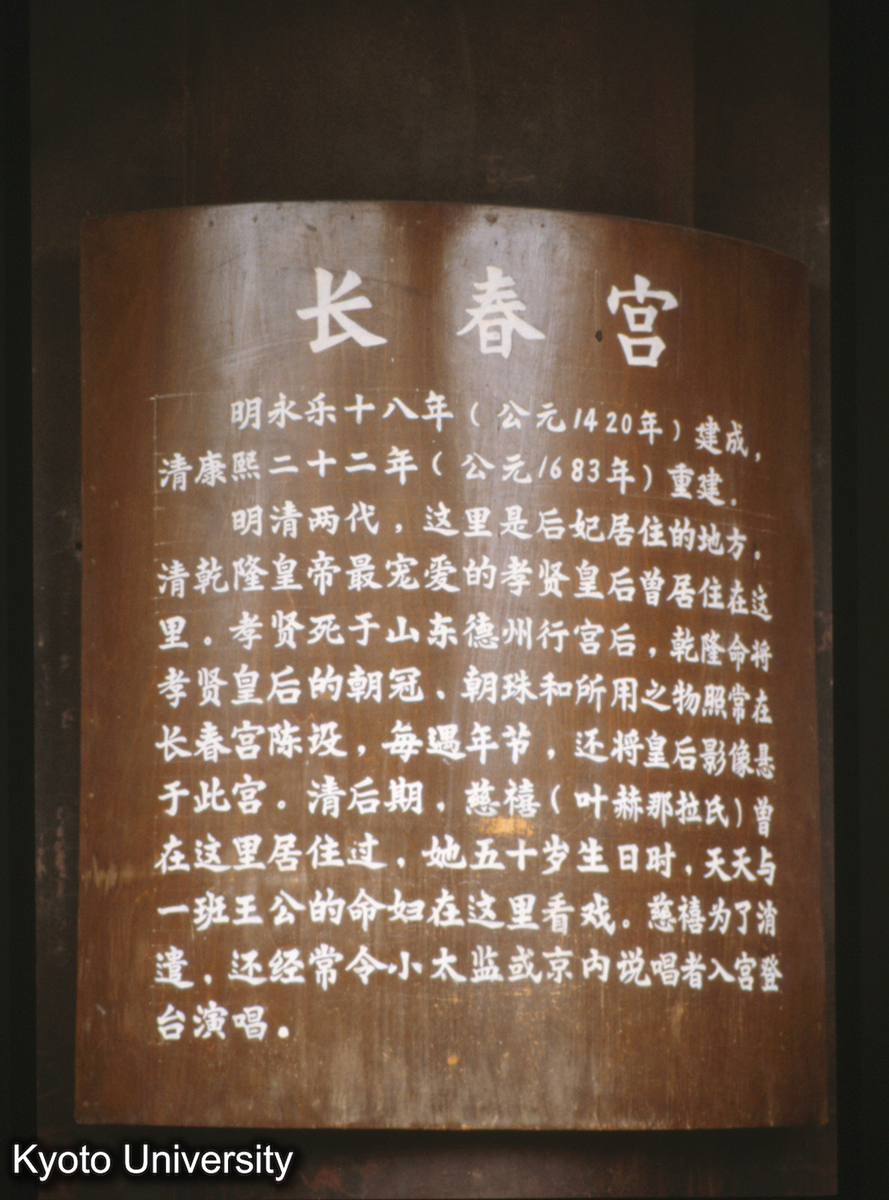 长春宫
明永乐十八年（公元1420年）建成，
清康熙二十二年（公元1683年）重建。
明清两代，这里是后妃居住的地方。
清乾隆皇帝最宠爱的孝贤皇后曾居住在这
里。孝贤死于山东德州行宫后，乾隆命将
孝贤皇后的朝冠、朝珠和所用之物照常在
长春宫陈设，每遇年节，还将皇后影像悬
于此宫。清后期，慈禧（叶赫那拉氏）曾
在这里居住过，她五十岁生日时，天天与
一班王公的命妇在这里看戏。慈禧为了消
遣，还经常令小太监或京内说唱者入宫登
台演唱。
Kyoto University